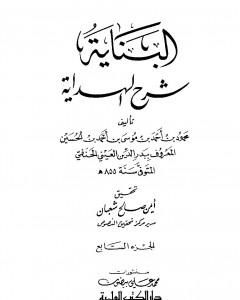 البناية
شرح الهداية
تأليف
محمود بن أحمد بن موسى بن أحمد بن الحسين
المعروف بدر الدين العيني الحنفي
المتوفى سنة ٨٥٥ هـ
تحقيق
أيمن صالح شعبان
مدير مركز تحقيق النصوص
الجزء السابع
منشورات
محمد علي بيضون
دار الكتب العلمية